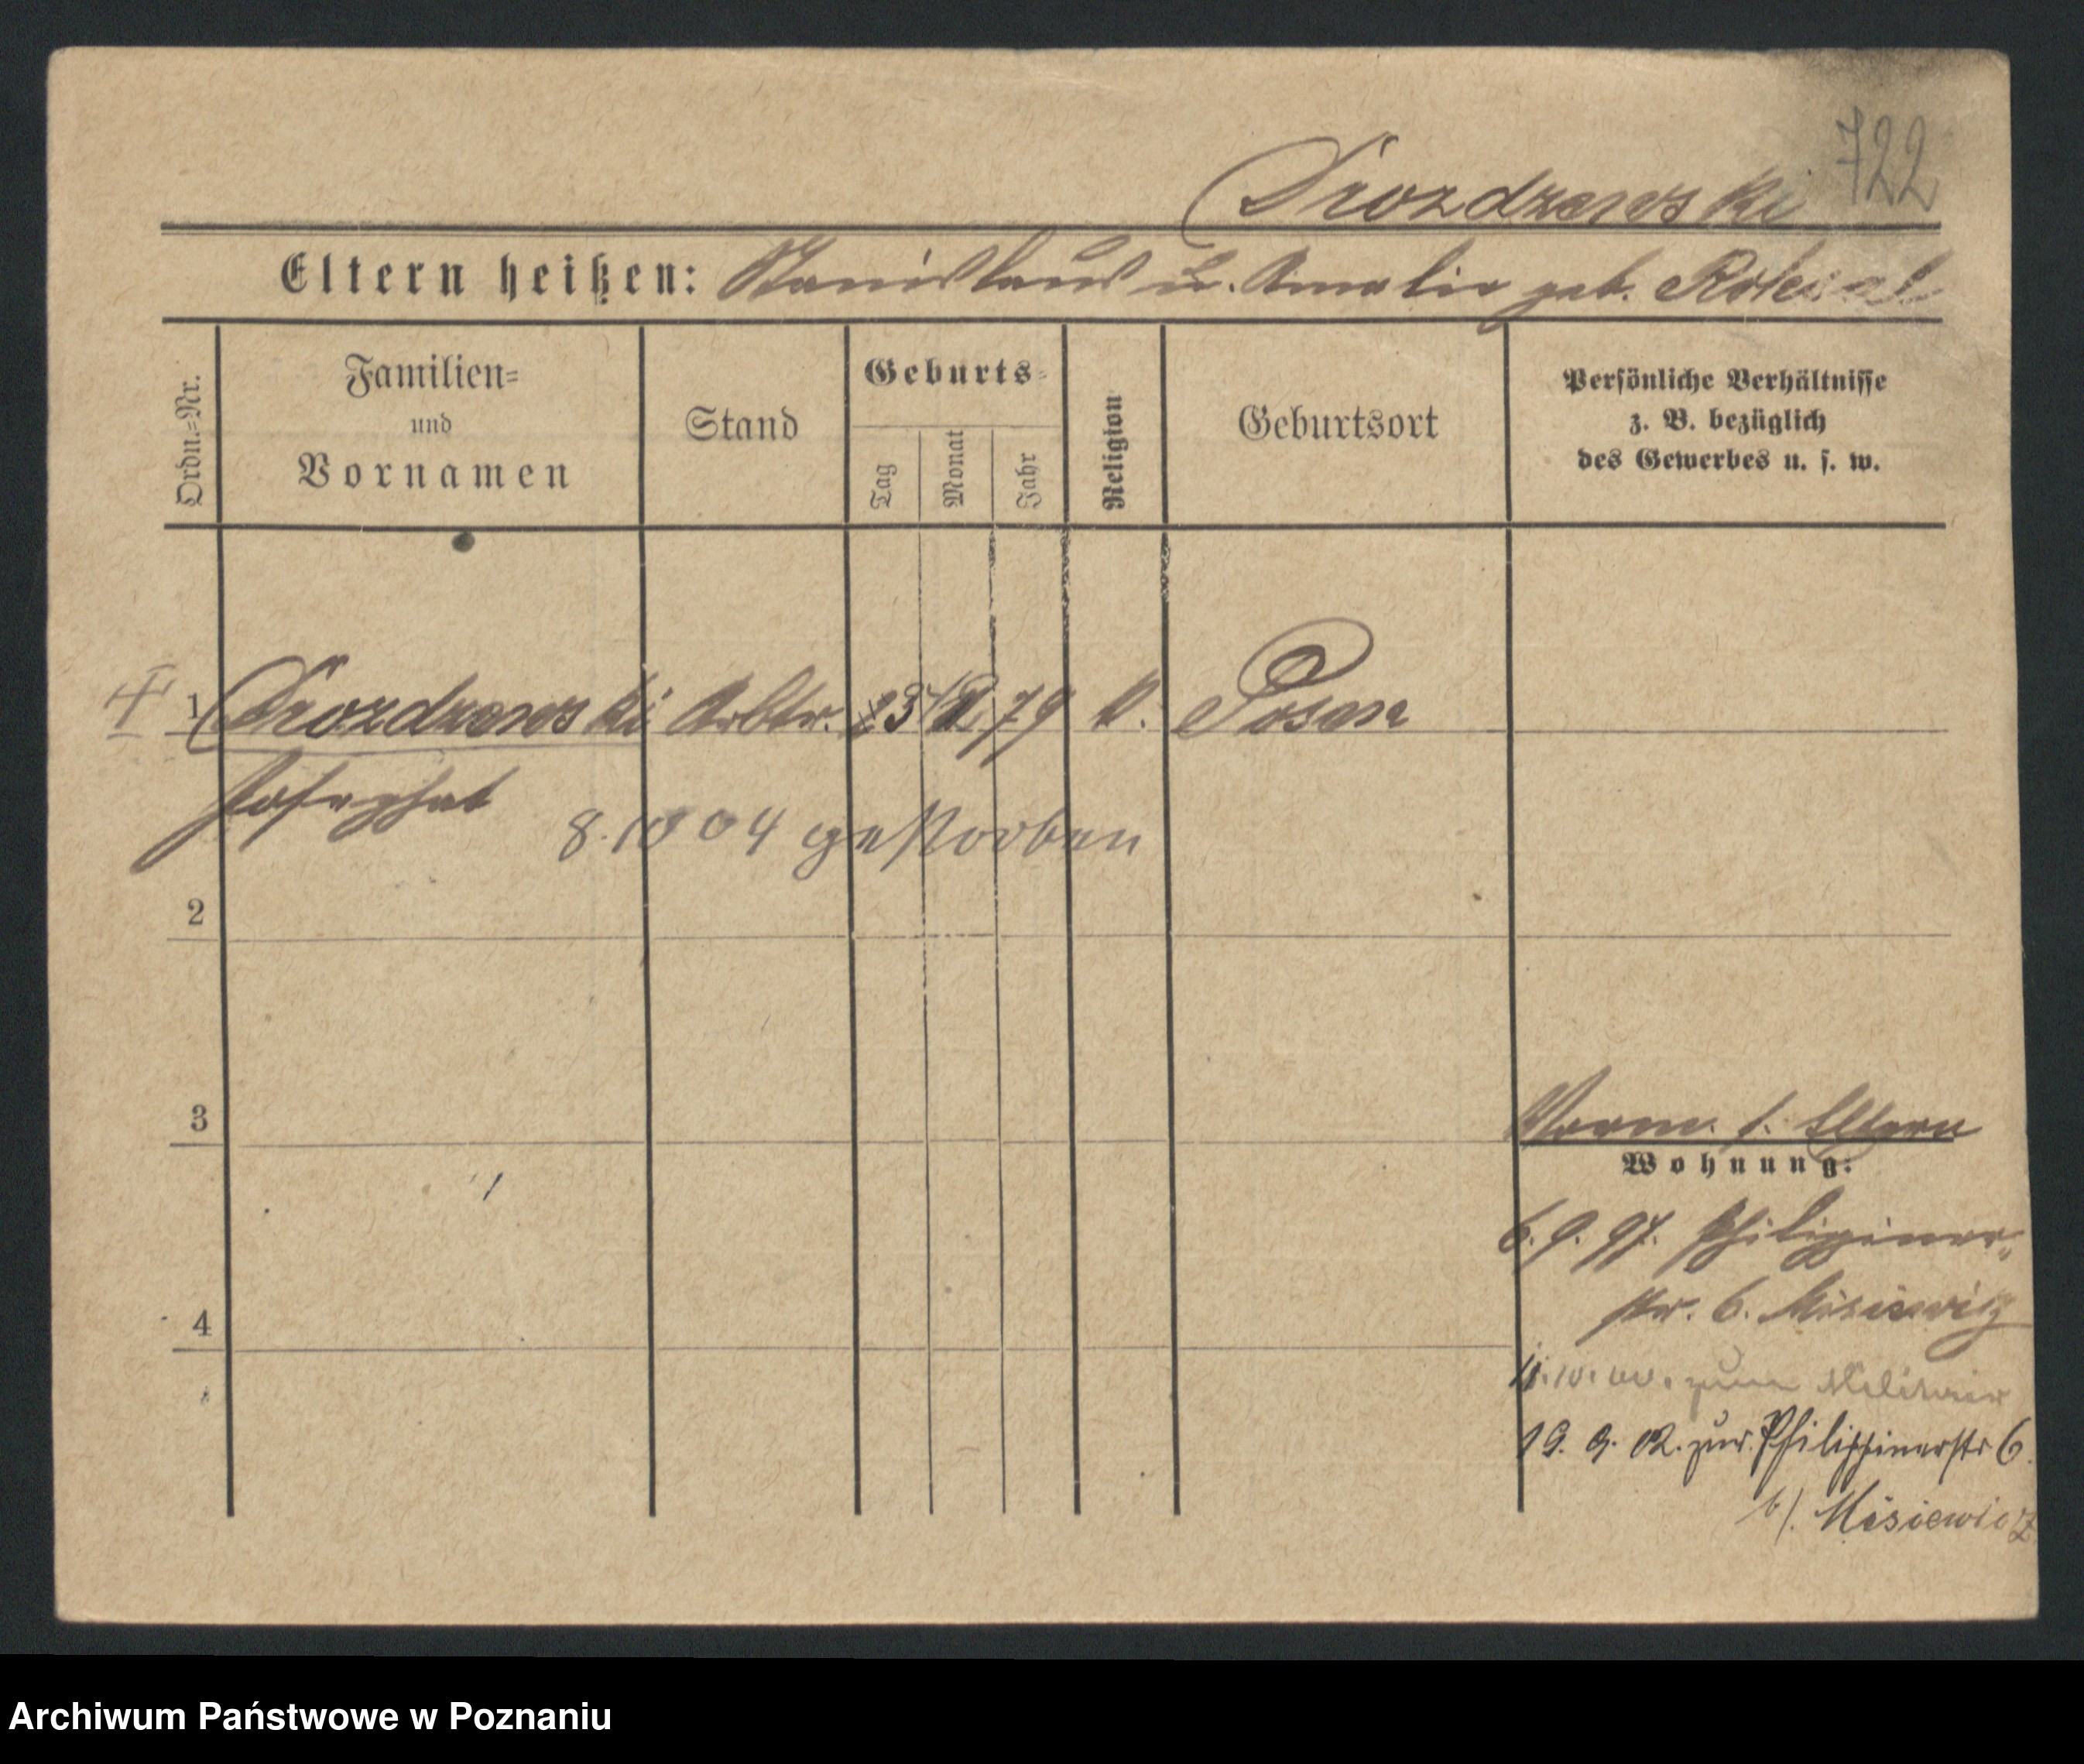 722
Drozdzewski
Eltern heißen: Stanislaus u. Amalie geb.
Ordn.=Nr.
Familien=
und
Vornamen
Stand
Geburts=
Tag
Monat
Jahr
Religion
Geburtsort
Persönliche Verhältnisse
z. B. bezüglich
des Gewerbes u. s. w.
1 Drozdzewski Arbtr. 23 12 79 k. Posen
Josephat
8. 10 04 gestorben
2
3
4
s. Eltern
Wohnung:
6. 9. 97. Philippiner-
str. 6. Misiewicz
11. 10. 00. zum Militair
19. 9. 02. zur. Philippinerstr 6.
b/. Misiewicz
Archiwum Państwowe w Poznaniu